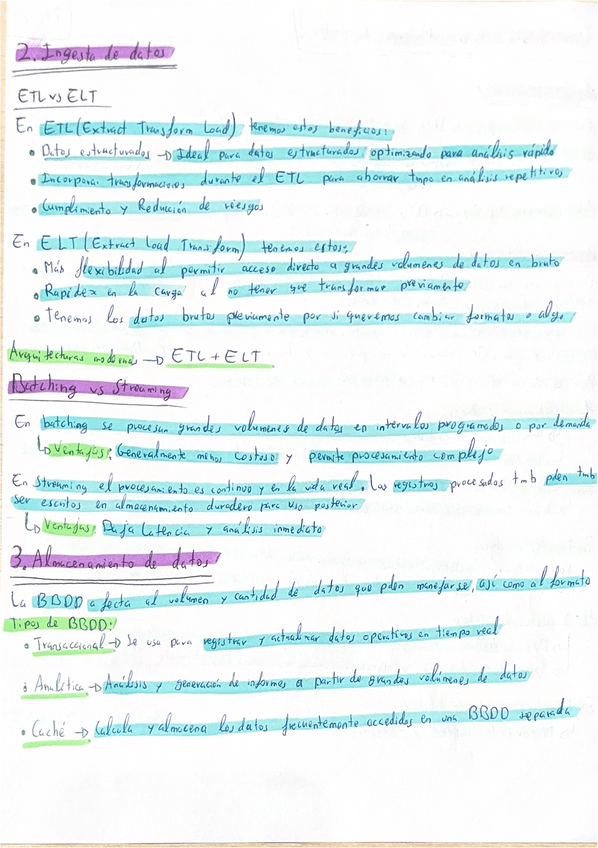 2. Ingesta de datos
ETL vs ELT
En ETL (Extract Transform Load) tenemos estos beneficios:
• Datos estructurados → Ideal para datos estructurados optimizando para análisis rápido
• Incorporar transformaciones durante el ETL para ahorrar tmpo en análisis repetitivos
• Cumplimento y Reducción de riesgos
En ELT (Extract Load Transform) tenemos estos:
• Más flexibilidad al permitir acceso directo a grandes volumenes de datos en bruto
• Rapidez en la carga al no tener que transformar previamente
• Tenemos los datos brutos previamente por si queremos cambiar formatos o algo.
Arquitecturas modernas → ETL + ELT
Batching vs Streaming
En batching se procesan grandes volumenes de datos en intervalos programados o por demanda
↳ Ventajas: Generalmente menos costoso y permite procesamiento complejo
En Streaming el procesamiento es continuo y en la vida real. Los registros procesados tmb pden tmb
ser escritos en almacenamiento duradero para uso posterior
↳ Ventajas: Baja Latencia y análisis inmediato
3. Almacenamiento de datos
La BBDD afecta al volumen y cantidad de datos que pden manejarse, así como al formato
Tipos de BBDD:
• Transaccional → Se usa para registrar y actualizar datos operativos en tiempo real
• Analítica → Análisis y generación de informes a partir de grandes volúmenes de datos
• Caché → Calcula y almacena los datos frecuentemente accedidos en una BBDD separada